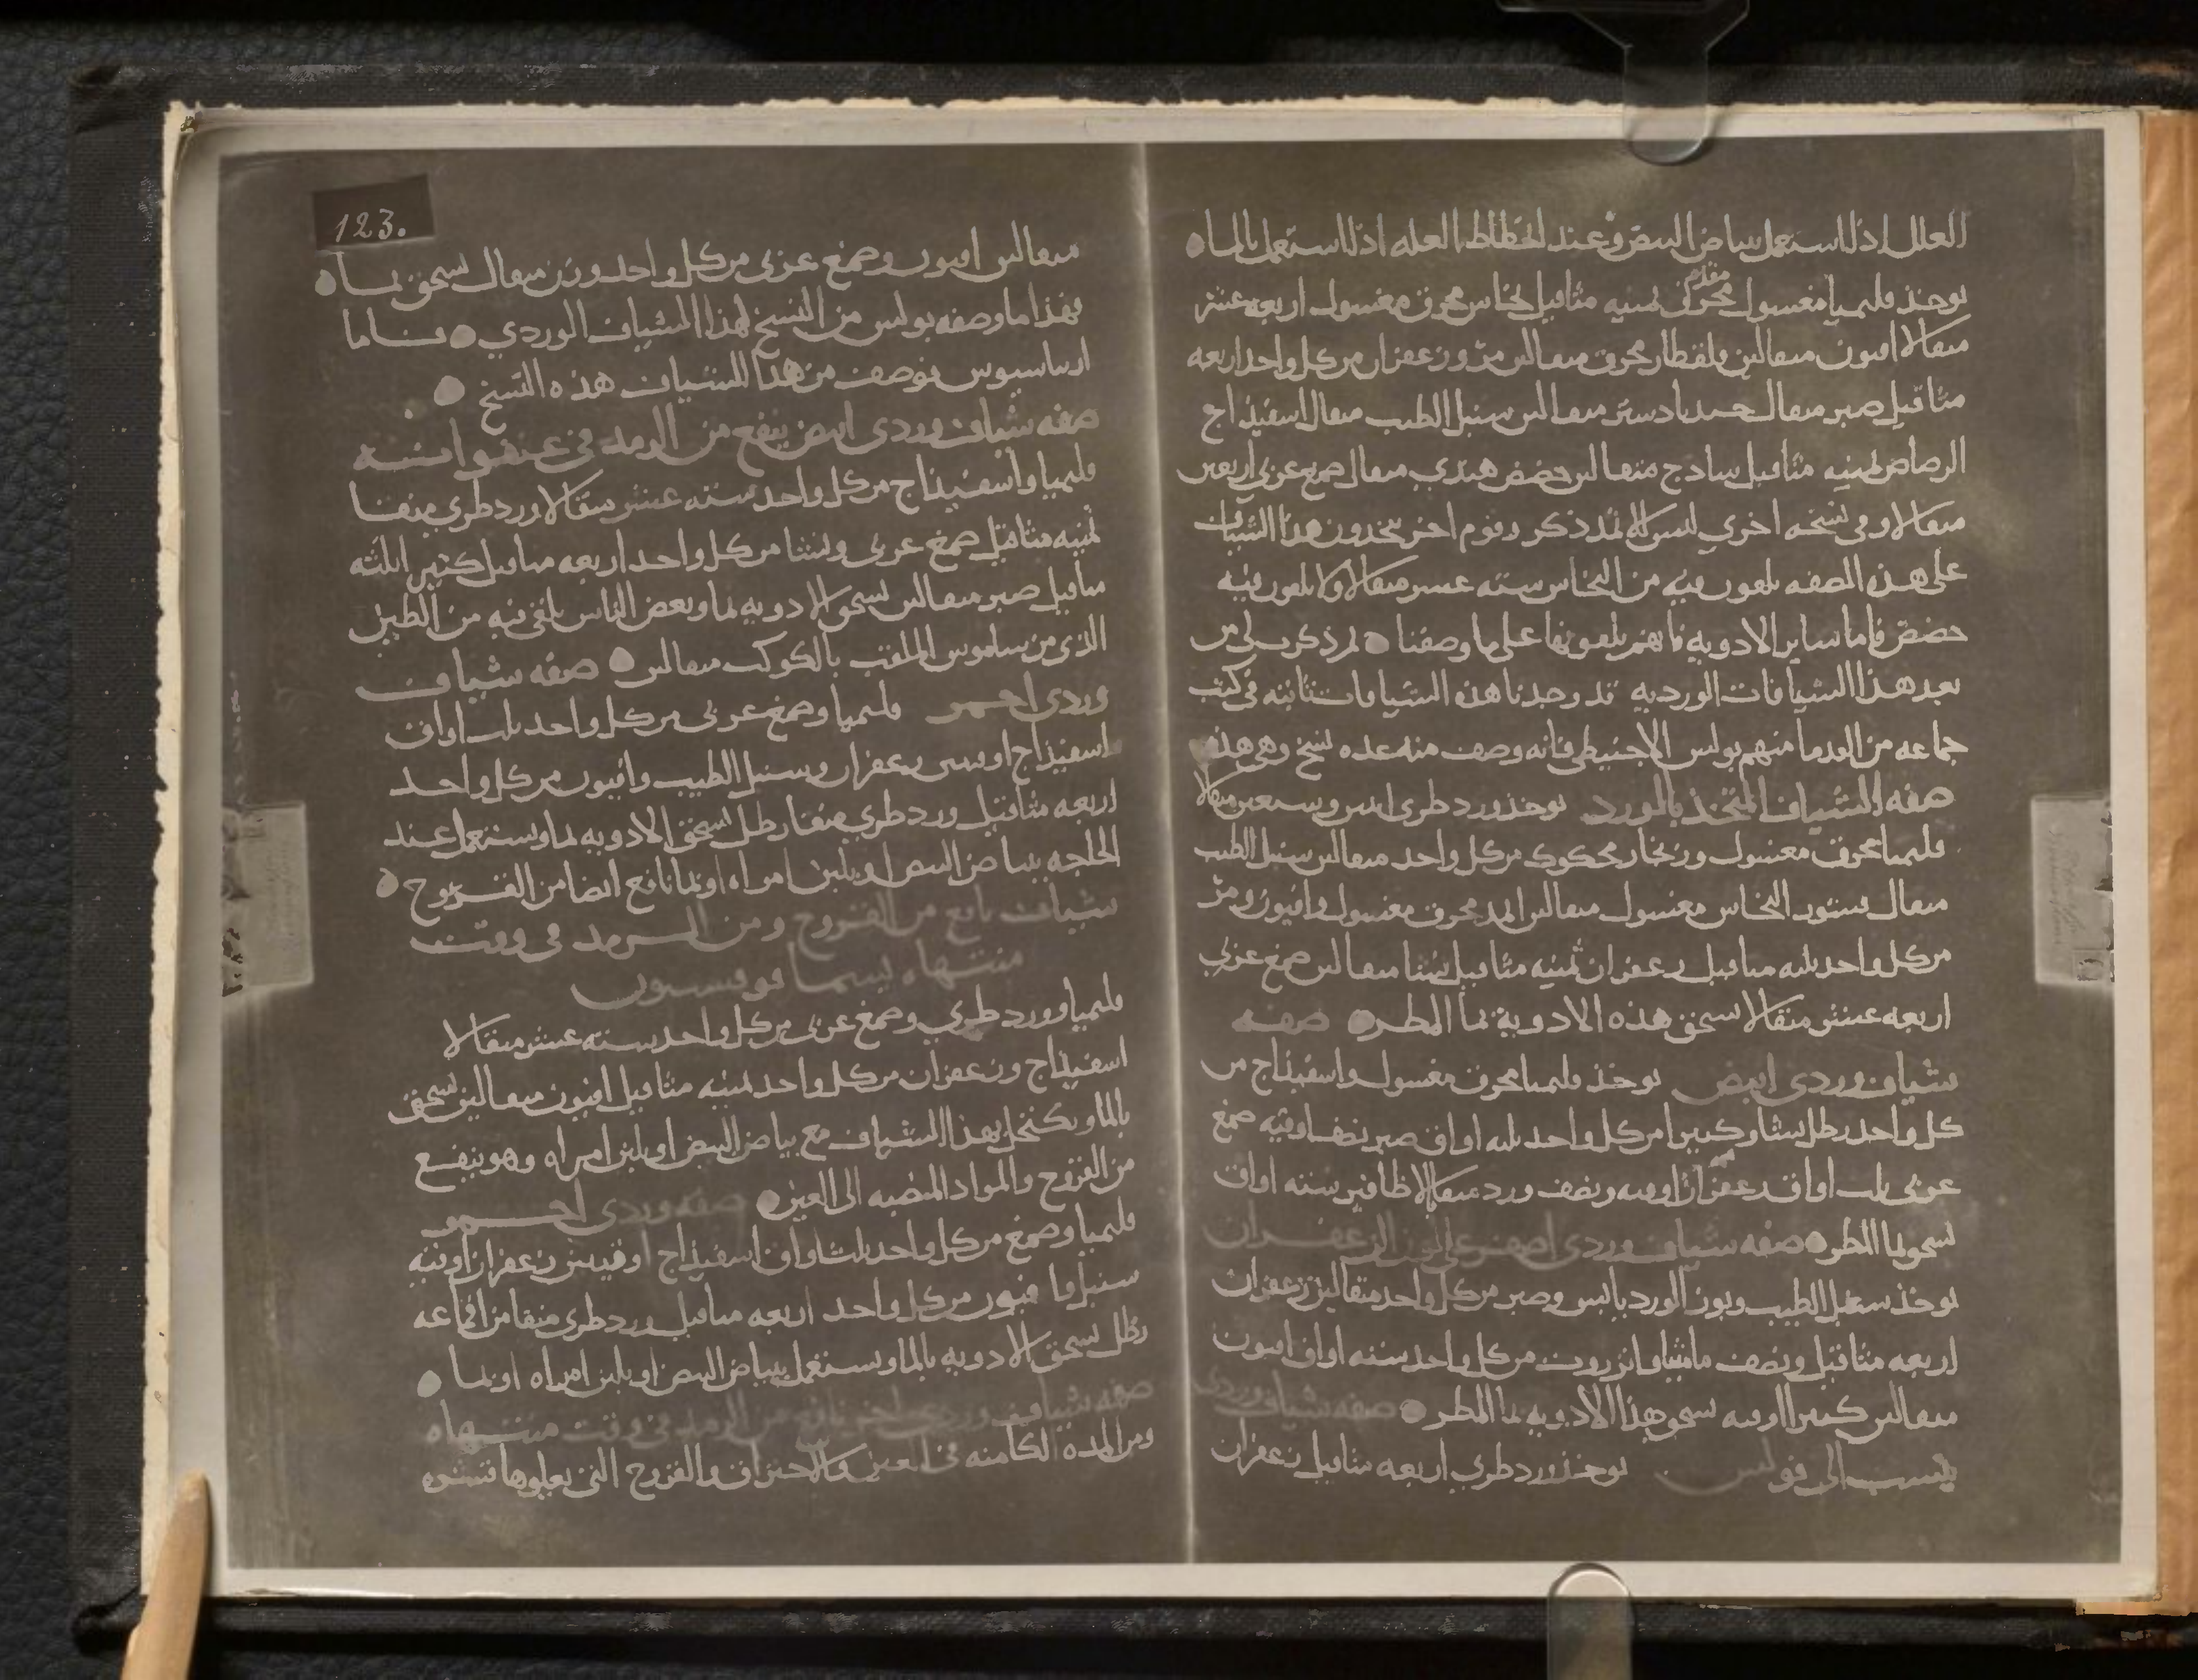 العلل اذا استعمل ببياض البيض وعند انحطاط العله اذا استعمل بالماء
يوخذ قليميا مغسول محرق ثمنيه مثاقيل نحاس محرق مغسول اربعه عشر
مثقالا افيون مثقالين قلقطار محرق مثقالين مر وزعفران من كل واحد اربعه
مثاقيل صبر مثقال جندبادستر مثقالين سنبل الطيب مثقال اسفيذاج
الرصاص ثمنيه مثاقيل سادج مثقالين حضض هندي مثقال صمغ عربي اربعين
مثقالا وفي نسخه اخري ليس وقوم اخر يتخذون هذا الشياف
علي هذه الصفه يلقون فيه من النحاس سته عشر مثقالا ولا يلقون فيه
حضض فاما ساير الادويه فانهم يلقونها علي ما وصفنا
بعد هذا الشيافات الورديه قد وجدنا هذه الشيافات في كتب
جماعه من القدما منهم بولس الاجنيطي فانه وصف منه عده نسخ وهي هذه
صفه الشياف المتخذ بالورد يوخذ ورد طري اثنين وسبعين مثقالا
قليميا محرق مغسول وزنجار محكوك من كل واحد مثقالين سنبل الطيب
مثقال النحاس مغسول مثقالين اثمد محرق مغسول وافيون ومر
من كل واحد ثلثه مثاقيل زعفران ثمنيه مثاقيل نشا مثقالين صمغ عربي
اربعه عشر مثقالا تسحق هذه الادوية بما المطر صفه
شياف وردي ابيض يوخذ قليميا محرق مغسول واسفيذاج من
كل واحد رطل نشا وكثيرا من كل واحد ثلثه اواق صبر نصف اوقيه صمغ
عربي ثلث اواق زعفران اوقيه ونصف ورد منقا الاظافير سته اواق
تسحق بما المطر صفه شياف وردي اصفر علي لون الزعفران
يوخذ سنبل الطيب وبزر الورد يابس وصبر من كل واحد مثقالين زعفران
اربعه مثاقيل ونصف ماميثا وانزروت من كل واحد سته اواق افيون
مثقالين كثيرا اوقيه تسحق هذا الادويه بما المطر صفه شياف وردي
ينسب الي فولس يوخذ ورد طري اربعه مثاقيل زعفران
123.
مثقالين افيون وصمغ عربي من كل واحد وزن مثقال تسحق بما
فهذا ما وصفه بولس من النسخ لهذا الشياف الوردي فاما
اريباسيوس فوصف من هذا الشياف هذه النسخ
صفه شياف وردي ابيض ينفع من الرمد في عنفوانه
قليميا واسفيذاج من كل واحد سته عشر مثقالا ورد طري منقا
ثمنيه مثاقيل صمغ عربي ونشا من كل واحد اربعه مثاقيل كثيرا ثلثه
مثاقيل صبر مثقالين تسحق الادويه بما وبعض الناس يلقي فيه من الطين
الذي من ساموس الملقب بالكوكب مثقالين صفه شياف
وردي احمر قليميا وصمغ عربي من كل واحد ثلث اواق
اسفيذاج اوقيتين زعفران وسنبل الطيب وافيون من كل واحد
اربعه مثاقيل ورد طري منقا رطل تسحق الادويه بما وتستعمل عند
الحاجه ببياض البيض او بلبن امراه او بما نافع ايضا من القروح
شياف نافع من القروح ومن الرمد في وقت
منتهاه يسما
قليميا وورد طري وصمغ عربي من كل واحد سته عشر مثقالا
اسفيذاج وزعفران من كل واحد ثمنيه مثاقيل افيون مثقالين تسحق
بالما ويكتحل بهذا الشياف مع بياض البيض او بلبن امراه وهو ينفع
من القروح والمواد المنصبه الي العين صفه وردي احمر
قليميا وصمغ من كل واحد ثلث اواق اسفيذاج اوقيتين زعفران اوقيه
سنبل وافيون من كل واحد اربعه مثاقيل ورد طري منقا من اقماعه
رطل تسحق الادويه بالما وتستعمل ببياض البيض او بلبن امراه او بما
صفه شياف وردي اخر نافع من الرمد في وقت منتهاه
ومن المده الكامنه في العين والاحتراق والقروح التي يعلوها قشره